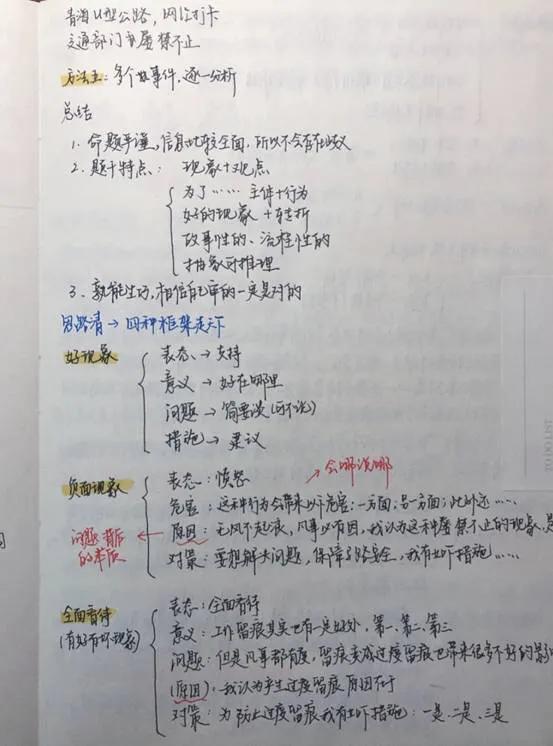 青海U型公路，网红打卡
交通部门屡禁不止
方法五：多个故事件，逐一分析
总结
1. 命题严谨，信息比较全面，所以不会有歧义
2. 题干特点：现象+观点
为了…… 主体+行为
好的现象 +转折
故事性的、流程性的
抽象对推理
3. 熟能生巧，相信自己审的一定是对的
思路清→四种框架走下
好现象
表态→支持
意义→好在哪里
问题→简要谈(可不说)
措施→建议
负面现象
表态：愤怒
→会哪说哪
危害：这种行为会带来以下危害：一方面；另一方面；此外还……
原因：无风不起浪，凡事必有因，我认为这种屡禁不止的现象，是
问题背后的本质
对策：要想解决问题，保障道路安全，我有以下措施……
全面看待
(有好有坏现象)
表态：全面看待
意义：工作留痕其实也有一定好处，第一、第二、第三
问题：但是凡事都有度，留痕变成过度留痕也带来很多不好的影响
(原因)：我认为产生过度留痕原因在于
对策：为防止过度留痕我有以下措施：一是、二是、三是